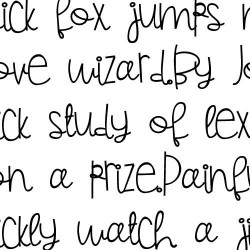 ick fox jumps
ove wizard.By Jo
ick study of lex
on a prize.Painf
ickly watch a ji